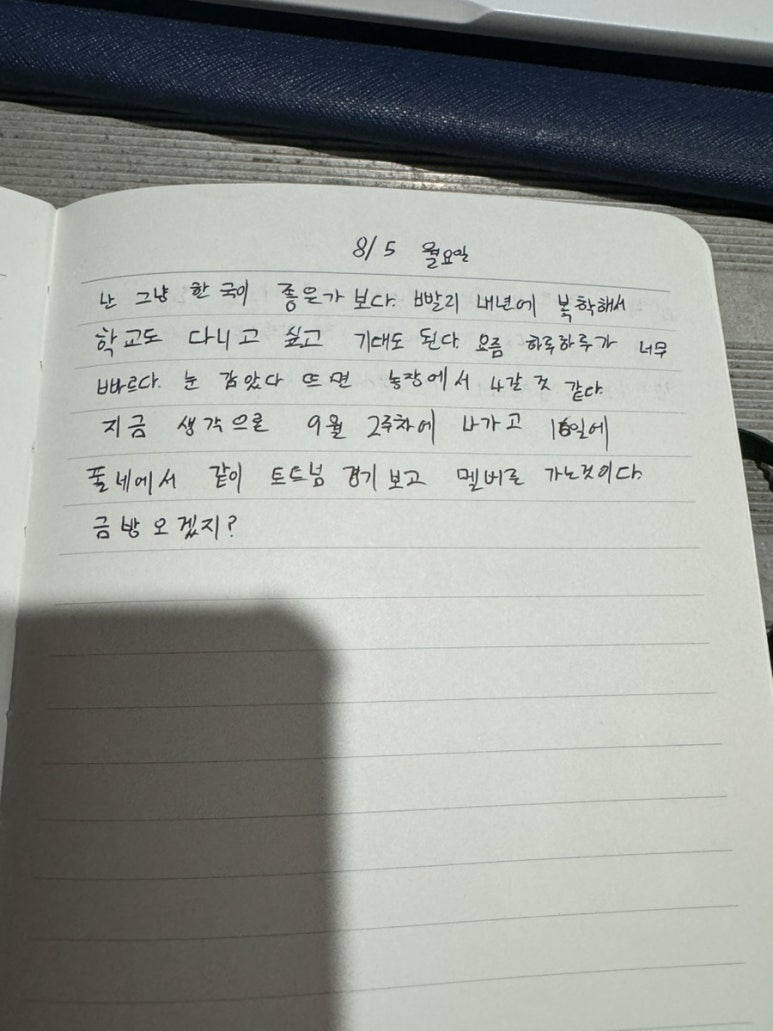 8/5 월요일
난 그냥 한국이 좋은가 보다. 빨리 내년에 복학해서
학교도 다니고 싶고 기대도 된다. 요즘 하루하루가 너무
빠르다. 눈 감았다 뜨면 농장에서 나갈 것 같다.
지금 생각으론 9월 2주차에 나가고 15일에
풀네에서 같이 토트넘 경기 보고 멜버른 가는것이다.
금방 오겠지?